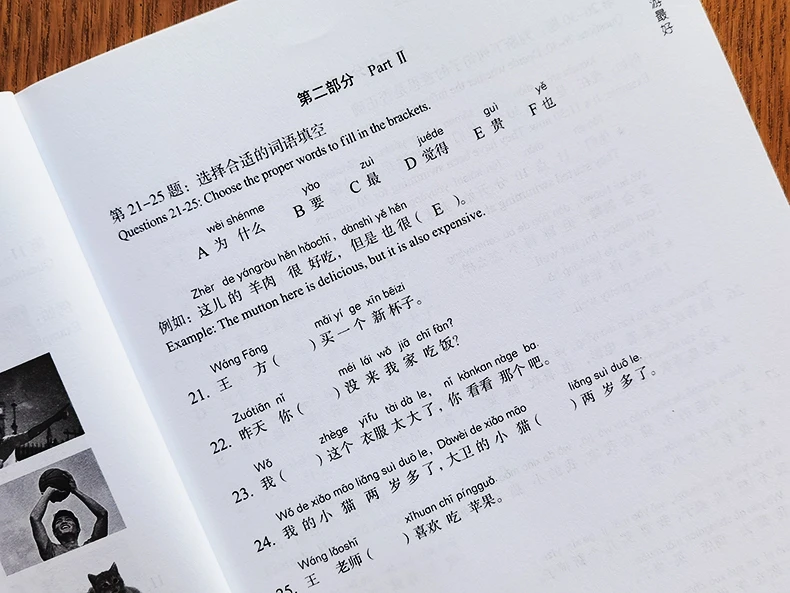 游最好
第二部分 Part II
第 21-25 题：选择合适的词语填空
Questions 21-25: Choose the proper words to fill in the brackets.
wèi shénme yào zuì juéde guì yě
A 为 什么 B 要 C 最 D 觉得 E 贵 F 也
Zhèr de yángròu hěn hǎochī, dànshì yě hěn
例如：这儿的 羊肉 很 好吃，但是 也 很（ E ）。
Example: The mutton here is delicious, but it is also expensive.
Wáng Fāng mǎi yí ge xīn bēizi
21. 王 方（ ）买 一 个 新 杯子。
Zuótiān nǐ méi lái wǒ jiā chī fàn?
22. 昨天 你（ ）没 来 我 家 吃 饭？
Wǒ zhège yīfu tài dà le, nǐ kànkan nàge ba.
23. 我（ ）这个 衣服 太大 了，你 看看 那个 吧。
Wǒ de xiǎo māo liǎng suì duō le, Dàwèi de xiǎo māo liǎng suì duō le.
24. 我 的 小 猫 两 岁 多 了，大卫 的 小 猫（ ）两 岁 多 了。
Wáng lǎoshī xǐhuan chī píngguǒ.
25. 王 老师（ ）喜欢 吃 苹果。